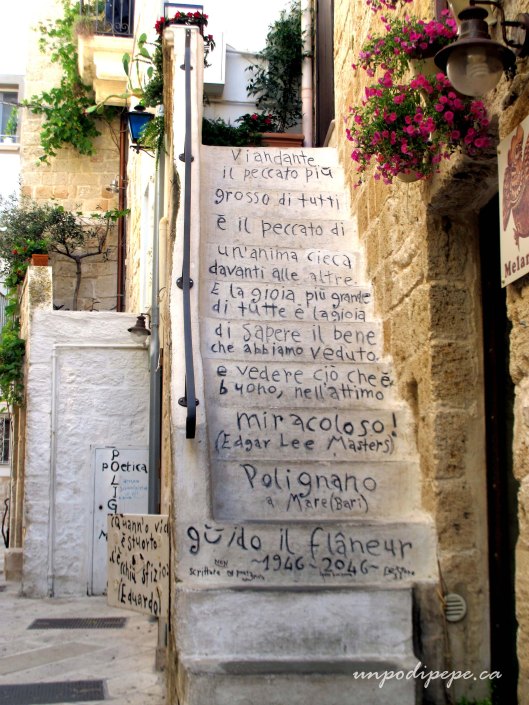 Viandante
il peccato più
grosso di tutti
è il peccato di
un'anima cieca
davanti alle altre
E la gioia più grande
di tutte è la gioia
di sapere il bene
che abbiamo veduto
e vedere ciò che è
buono, nell'attimo
miracoloso!
(Edgar Lee Masters)
Polignano
a Mare (Bari)
guido il flâneur
~1946-2046~
Poetica
POLIG
M
è stuorto
sfizio
Eduardo
Melar
unpodipepe.ca